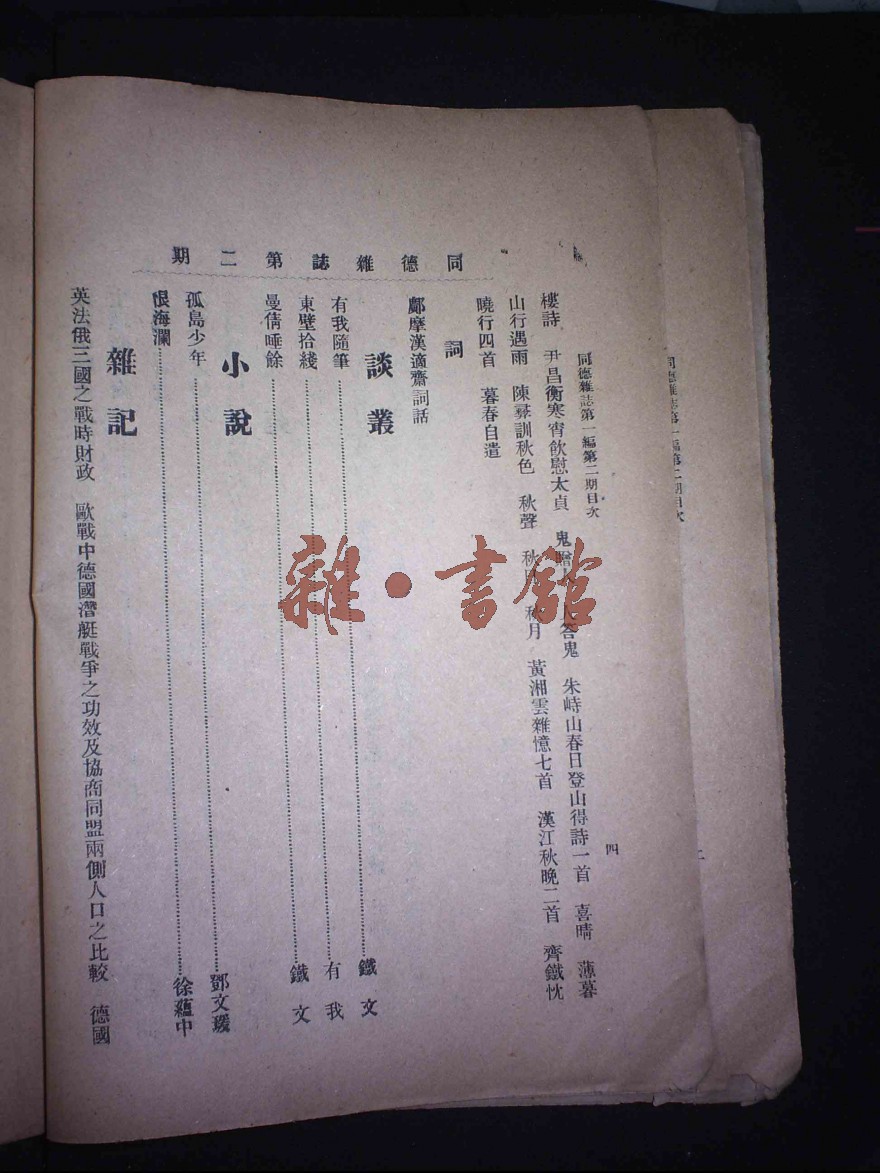 同德雜誌第二期
同德雜誌第一編第二期目次
四
樓詩　尹昌衡寒宵飲慰太貞　鬼贈人　人答鬼　朱峙山春日登山得詩一首　喜晴　薄暮
山行遇雨　陳彛訓秋色　秋聲　秋月　黃湘雲雜憶七首　漢江秋晚二首　齊鐵忱
曉行四首　暮春自遣
詞
鄺摩漢適齋詞話
談叢
有我隨筆 鐵文
東壁拾綫 有我
曼倩唾餘 鐵文
小說
孤島少年 鄧文瑗
恨海瀾 徐蘊中
雜記
英法俄三國之戰時財政　歐戰中德國潛艇戰爭之功效及協商同盟兩側人口之比較　德國
雜·書館